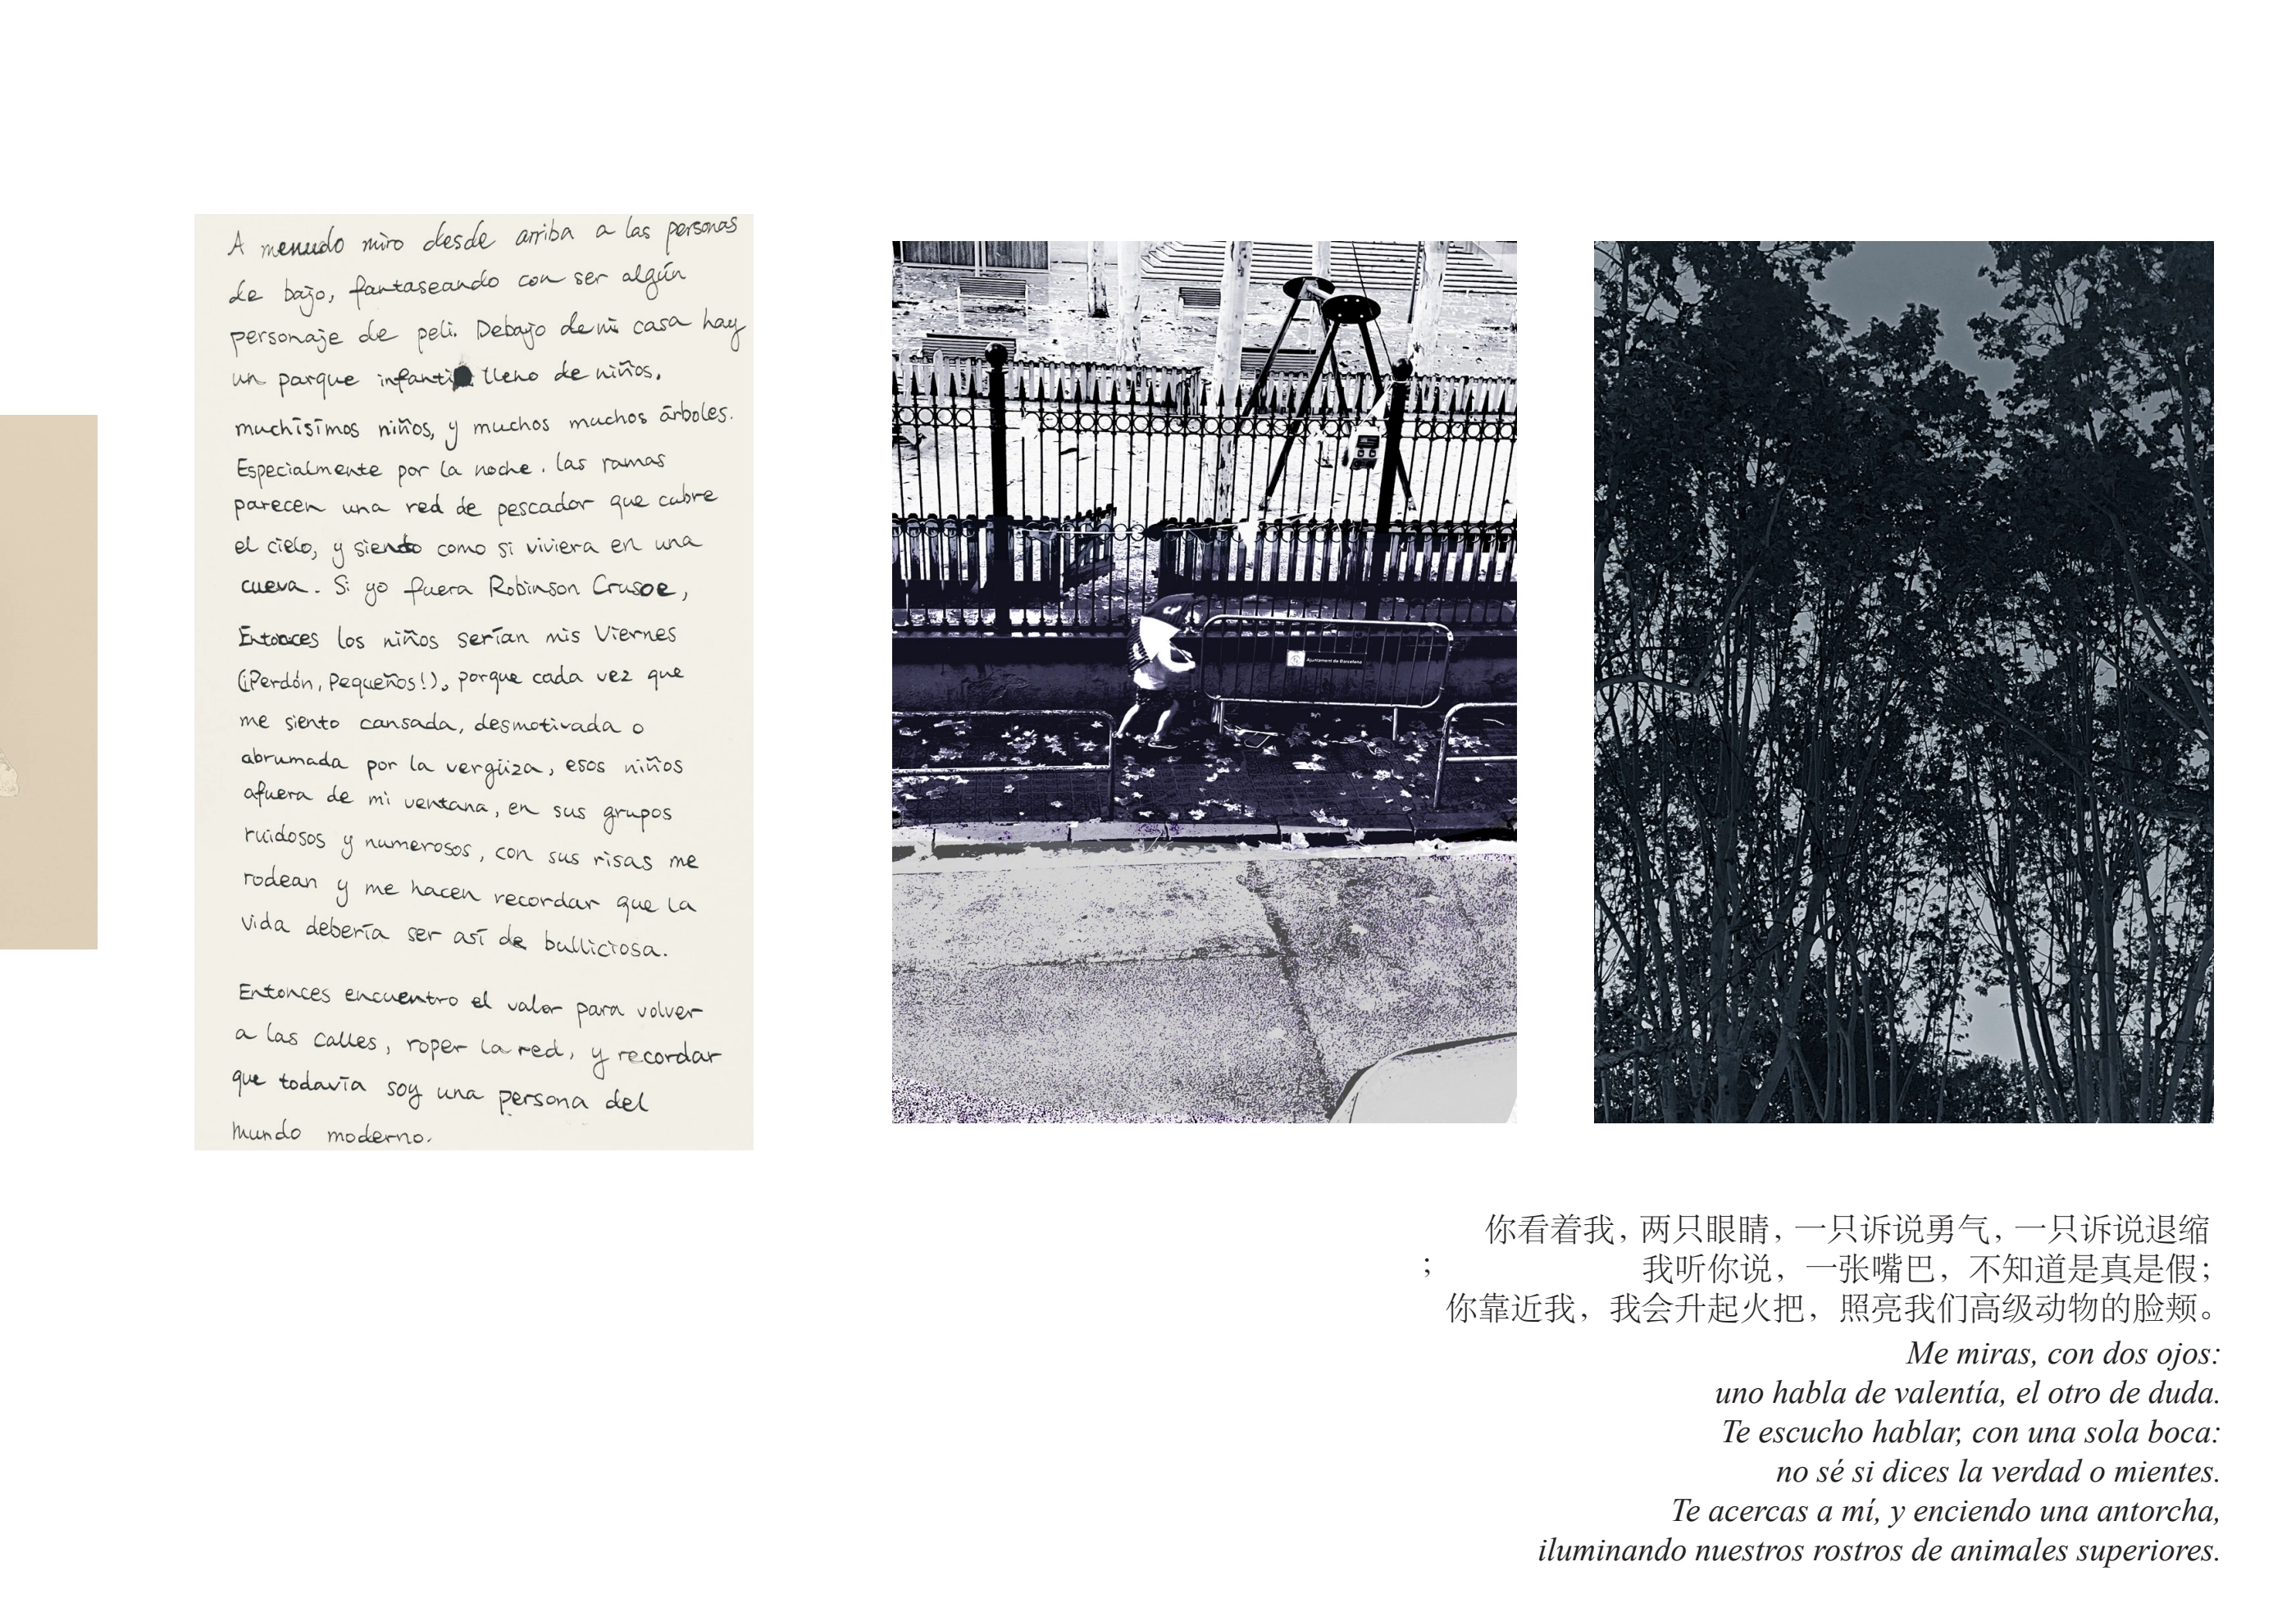 A menudo miro desde arriba a las personas
de bajo, fantaseando con ser algún
personaje de peli. Debajo de mi casa hay
un parque infanti lleno de niños.
muchísimos niños, y muchos muchos árboles.
Especialmente por la noche. las ramas
parecen una red de pescador que cubre
el cielo, y siento como si viviera en una
cueva. Si yo fuera Robinson Crusoe,
Entonces los niños serían mis Viernes
(¡Perdón, Pequeños!). porque cada vez que
me siento cansada, desmotivada o
abrumada por la vergüiza, esos niños
afuera de mi ventana, en sus grupos
ruidosos y numerosos, con sus risas me
rodean y me hacen recordar que la
vida debería ser así de bulliciosa.
Entonces encuentro el valor para volver
a las calles, roper la red, y recordar
que todavía soy una persona del
mundo moderno.
Ajuntament de Barcelona
你看着我，两只眼睛，一只诉说勇气，一只诉说退缩
； 我听你说，一张嘴巴，不知道是真是假；
你靠近我，我会升起火把，照亮我们高级动物的脸颊。
Me miras, con dos ojos:
uno habla de valentía, el otro de duda.
Te escucho hablar, con una sola boca:
no sé si dices la verdad o mientes.
Te acercas a mí, y enciendo una antorcha,
iluminando nuestros rostros de animales superiores.